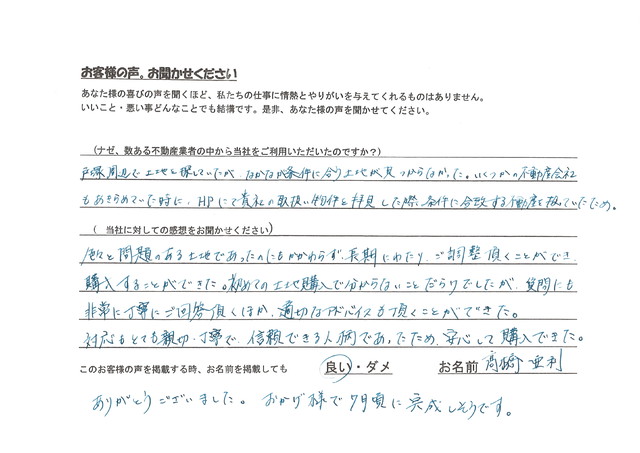 お客様の声。お聞かせください
あなた様の喜びの声を聞くほど、私たちの仕事に情熱とやりがいを与えてくれるものはありません。
いいこと・悪い事どんなことでも結構です。是非、あなた様の声を聞かせてください。
(ナゼ、数ある不動産業者の中から当社をご利用いただいたのですか?)
戸塚周辺で土地を探していたが、なかなか条件に合う土地が見つからなかった。いくつかの不動産会社
もあきらめていた時に、HPにて貴社の取扱い物件を拝見した際、条件に合致する不動産を扱っていたため。
( 当社に対しての感想をお聞かせください)
色々と問題のある土地であったのにもかかわらず、長期にわたり、ご調整頂くことができ、
購入することができた。初めての土地購入で分からないことだらけでしたが、質問にも
非常に丁寧にご回答頂くほか、適切なアドバイスも頂くことができた。
対応もとても親切・丁寧で、信頼できる人柄であったため、安心して購入できた。
このお客様の声を掲載する時、お名前を掲載しても 良い・ダメ お名前 髙橋 亜利
ありがとうございました。おかげ様で7月頃に完成しそうです。